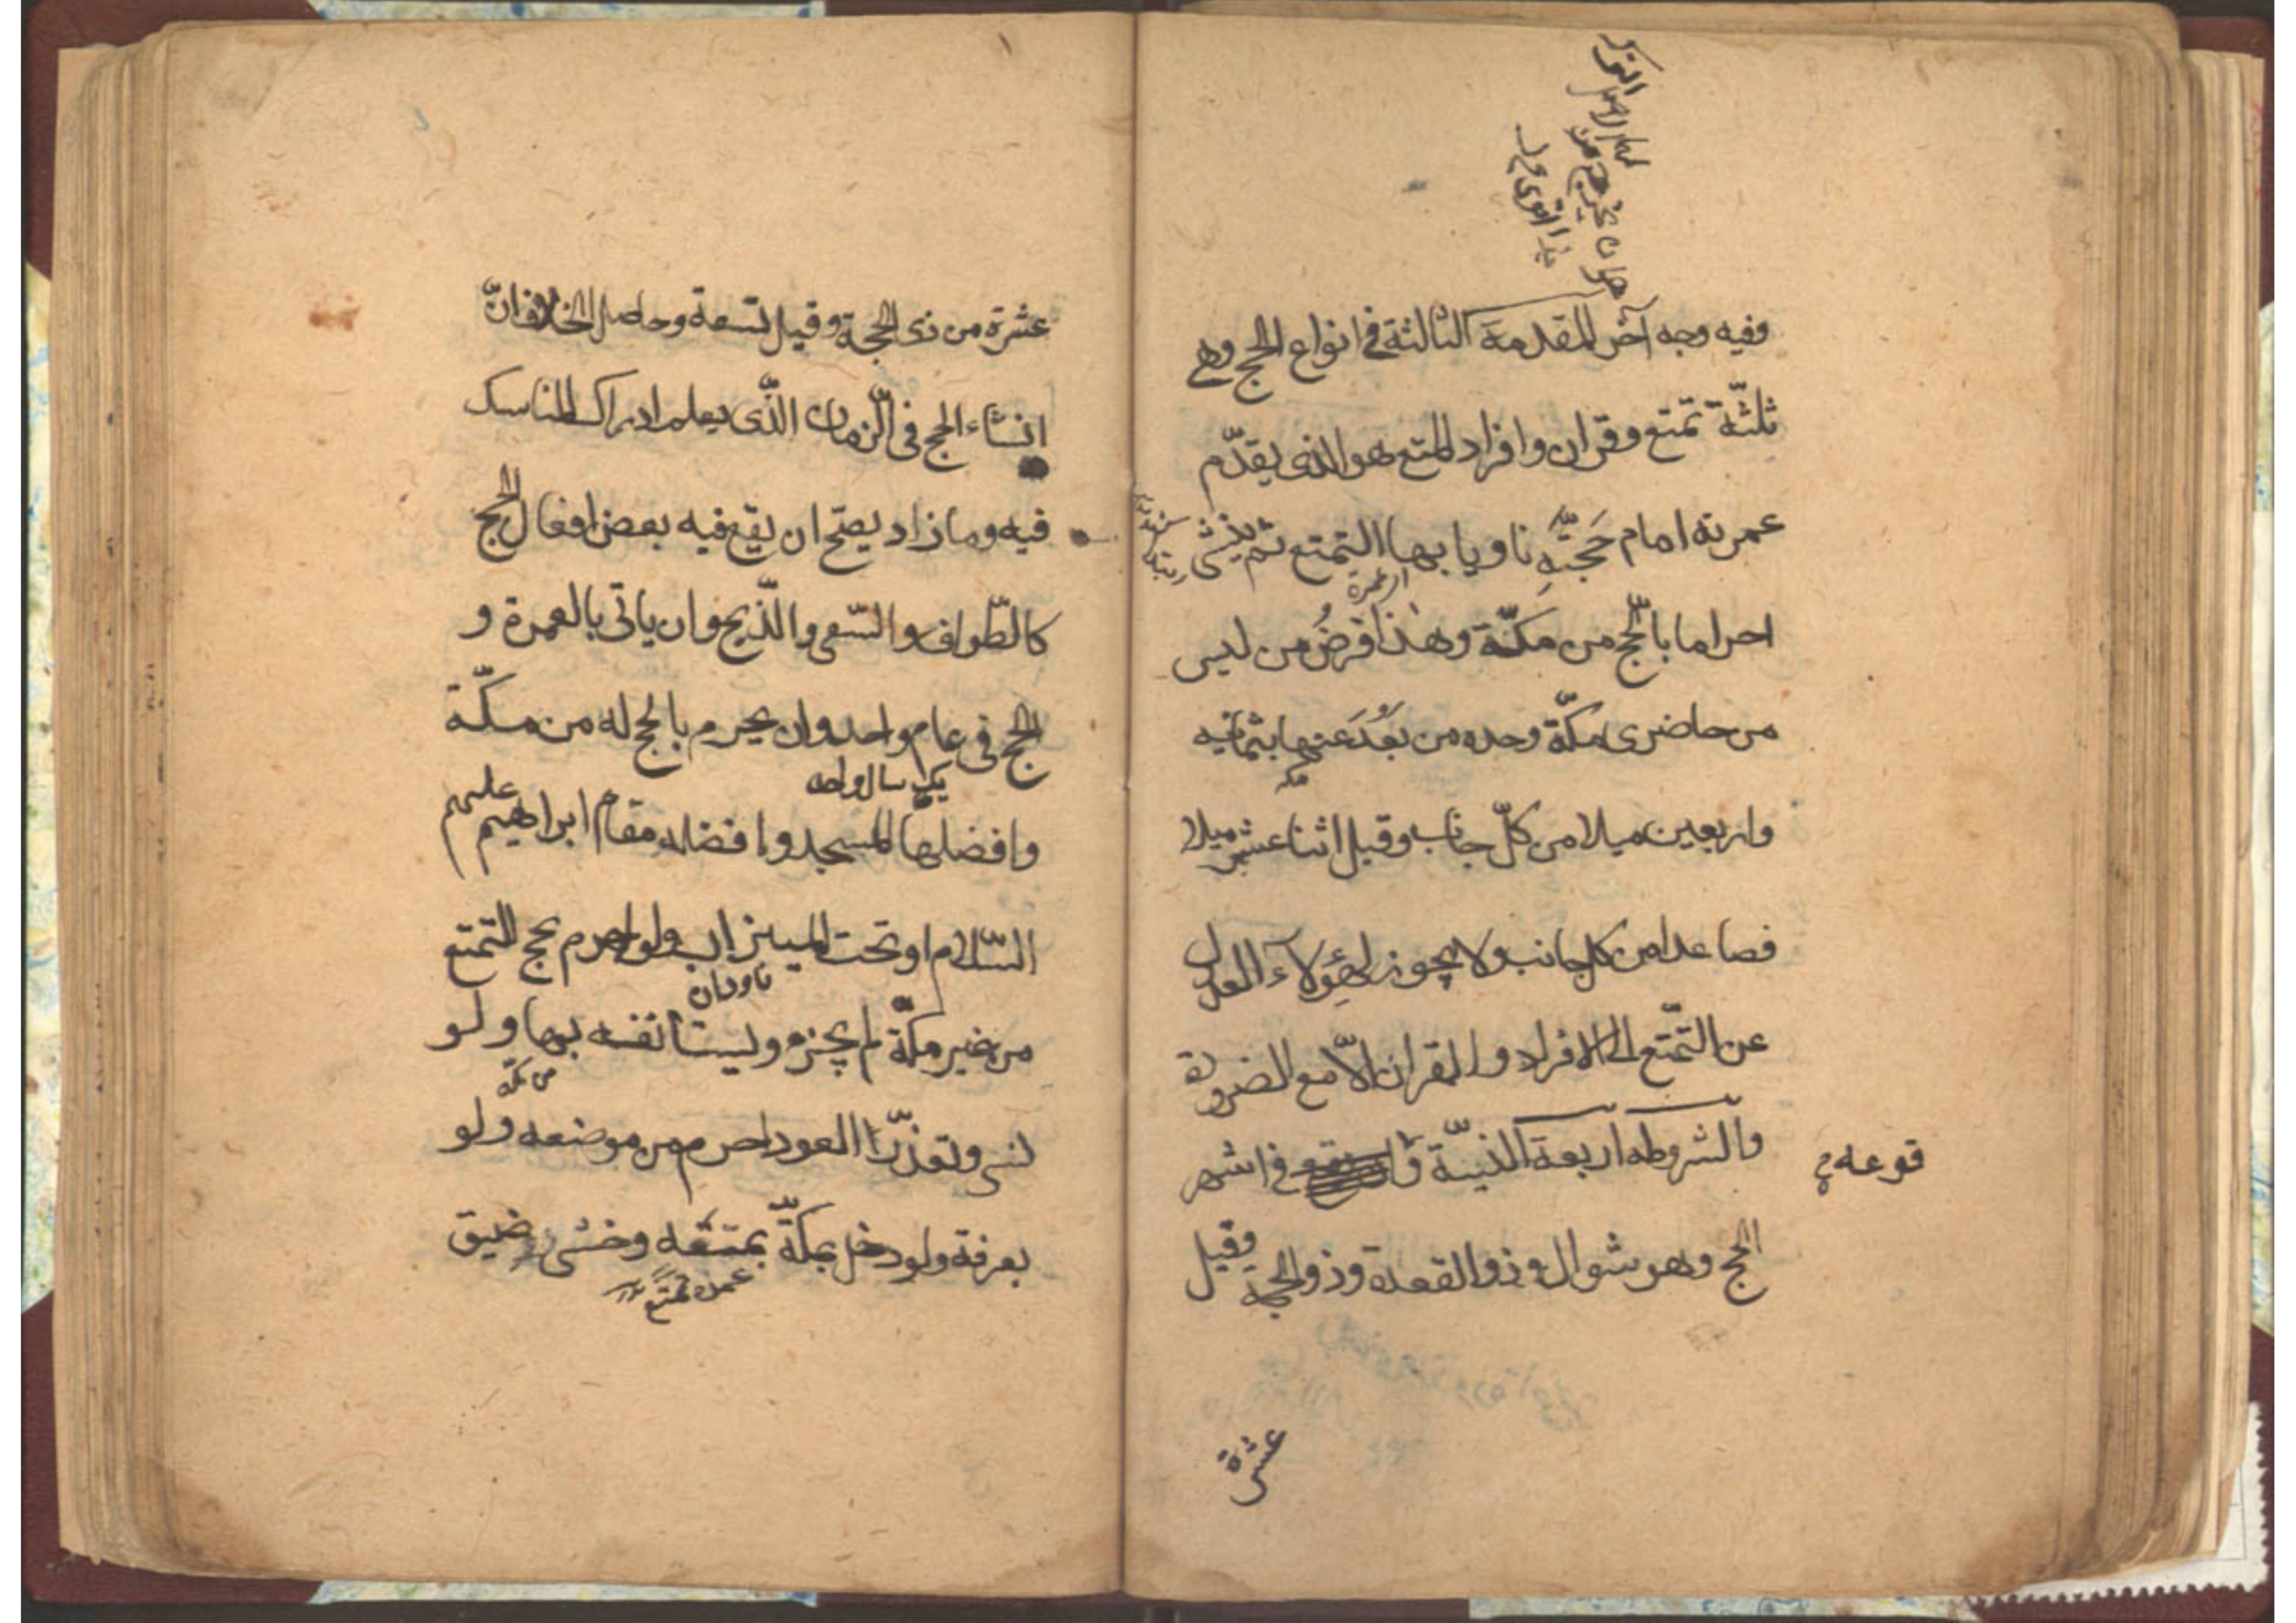 وفيه وجه آخر المقدمة الثالثة في انواع الحج وهي
ثلثة تمتع وقران وافراد المتمتع هو الذى يقدّم
عمرته امام حَجّتِهِ ناويا بها التمتع ثم ينشئ
احراما بالحّج من مكّة وهذا فرضُ من ليس
از عمرة
من حاضرى مكّة وحده من بَعُدَ عنها بثمانيه
مكه
واربعين ميلا من كلّ جانب وقيل اثنا عشر ميلا
فصاعدا من كل جانب ولا يجوز لهؤلاء العدول
عن التمّتع الى الافراد والقران الّا مع الضرورة
والشروطه اربعة النيّة و في اشهر
وقوعه
الحج وهو شوال وذو القعدة وذو الحجة وقيل
عشرة
عشرة من ذى الحجة وقيل تسعة وحاصل الخلاف انّ
انشاء الحج فى الّزمان الّذى يعلم ادراك المناسك
فيه وما زاد يصّح ان يقع فيه بعض افعال الحج
كالطّواف والسّعى والّذبح وان ياتى بالعمرة و
الحج فى عام واحد وان يحرم بالحج له من مكّة
يك سال واحد
وافضلها المسجد وافضله مقام ابراهيم عليهم
السّلام او تحت الميزاب ولو احرم بحج التمتع
ناودان
من غير مكّة لم يجزه ويستانفه بها ولو
من مكه
نسى وتعذّر العود احرم من موضعه ولو
بعرفة ولو دخل بمكّة بمتعَه وخشى ضيق
عمره تمتع